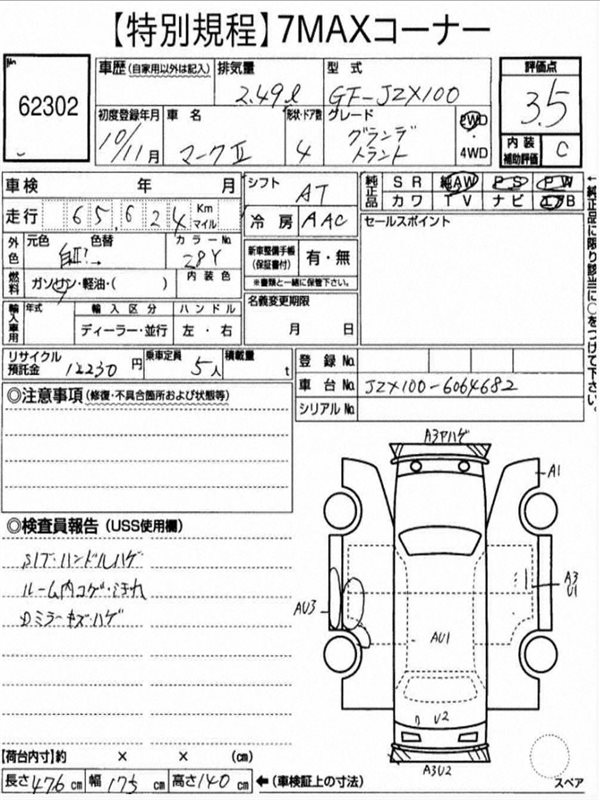 【特別規程】7MAXコーナー
No.
62302
車歴（自家用以外は記入） 排気量 2.49ℓ 型式 GF-JZX100
評価点 3.5
内装補助評価 C
初度登録年月 10/11月 車名 マークⅡ 形状・ドア数 4 グレード グランデ 2WD・4WD
車検 年 月
走行 65,624 Km マイル
シフト AT
冷房 AAC
純正品 SR 純AW PS PW
カワ TV ナビ エアB
セールスポイント
外色 元色 色替 カラーNo. 28Y
燃料 ガソリン・軽油・（ ） 内装色
新車整備手帳（保証書付） 有・無
※書類と一緒に保管下さい。
輸入車用 年式 輸入区分 ディーラー・並行 ハンドル 左・右
名義変更期限 月 日
リサイクル預託金 12230円 乗車定員 5人 積載量 t
登録No.
車台No. JZX100-6064682
シリアルNo.
←純正品に限り該当に○をつけて下さい。
◎注意事項（修復・不具合箇所および状態等）
◎検査員報告（USS使用欄）
SIT・ハンドルハゲ
ルーム内コゲ・汚れ
Dミラーキズハゲ
A3ヤハゲ
A1
A3
U1
AU3
AU1
U2
A3U2
スペア
【荷台内寸】約 × × （cm）
長さ476cm 幅175cm 高さ140cm ←（車検証上の寸法）